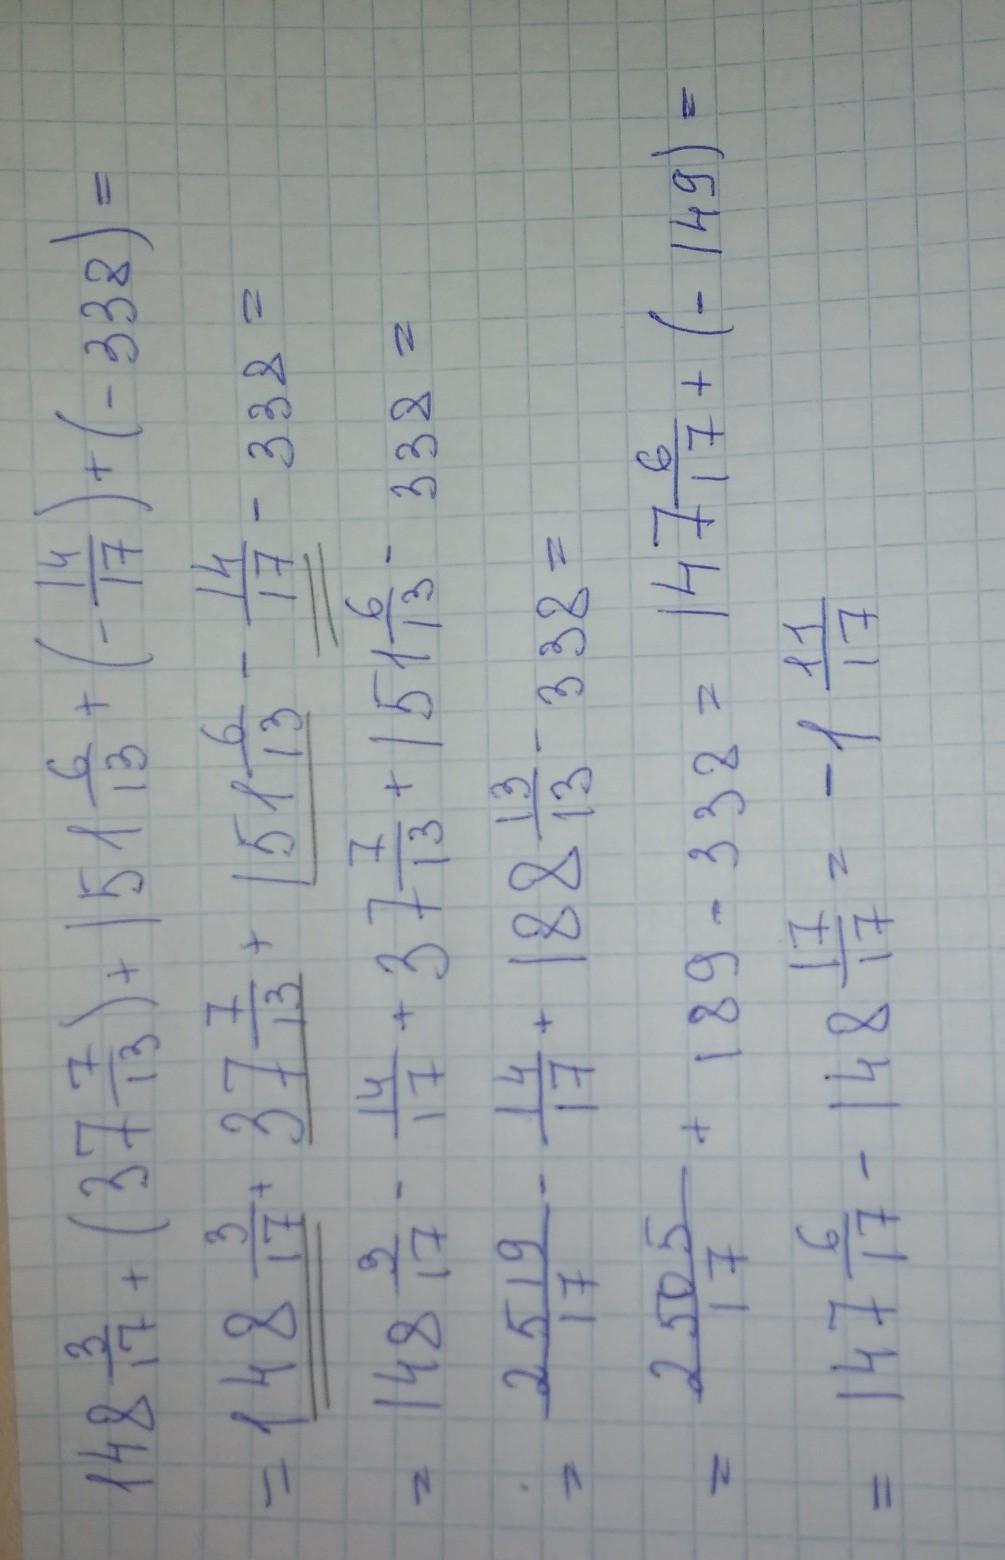 148 3/17 + (37 7/13) + 151 6/13 + (- 14/17) + (- 338) =
= 148 3/17 + 37 7/13 + 151 6/13 - 14/17 - 338 =
= 148 3/17 - 14/17 + 37 7/13 + 151 6/13 - 338 =
= 2519/17 - 14/17 + 188 13/13 - 338 =
= 2505/17 + 189 - 338 = 147 6/17 + (- 149) =
= 147 6/17 - 148 17/17 = - 1 11/17